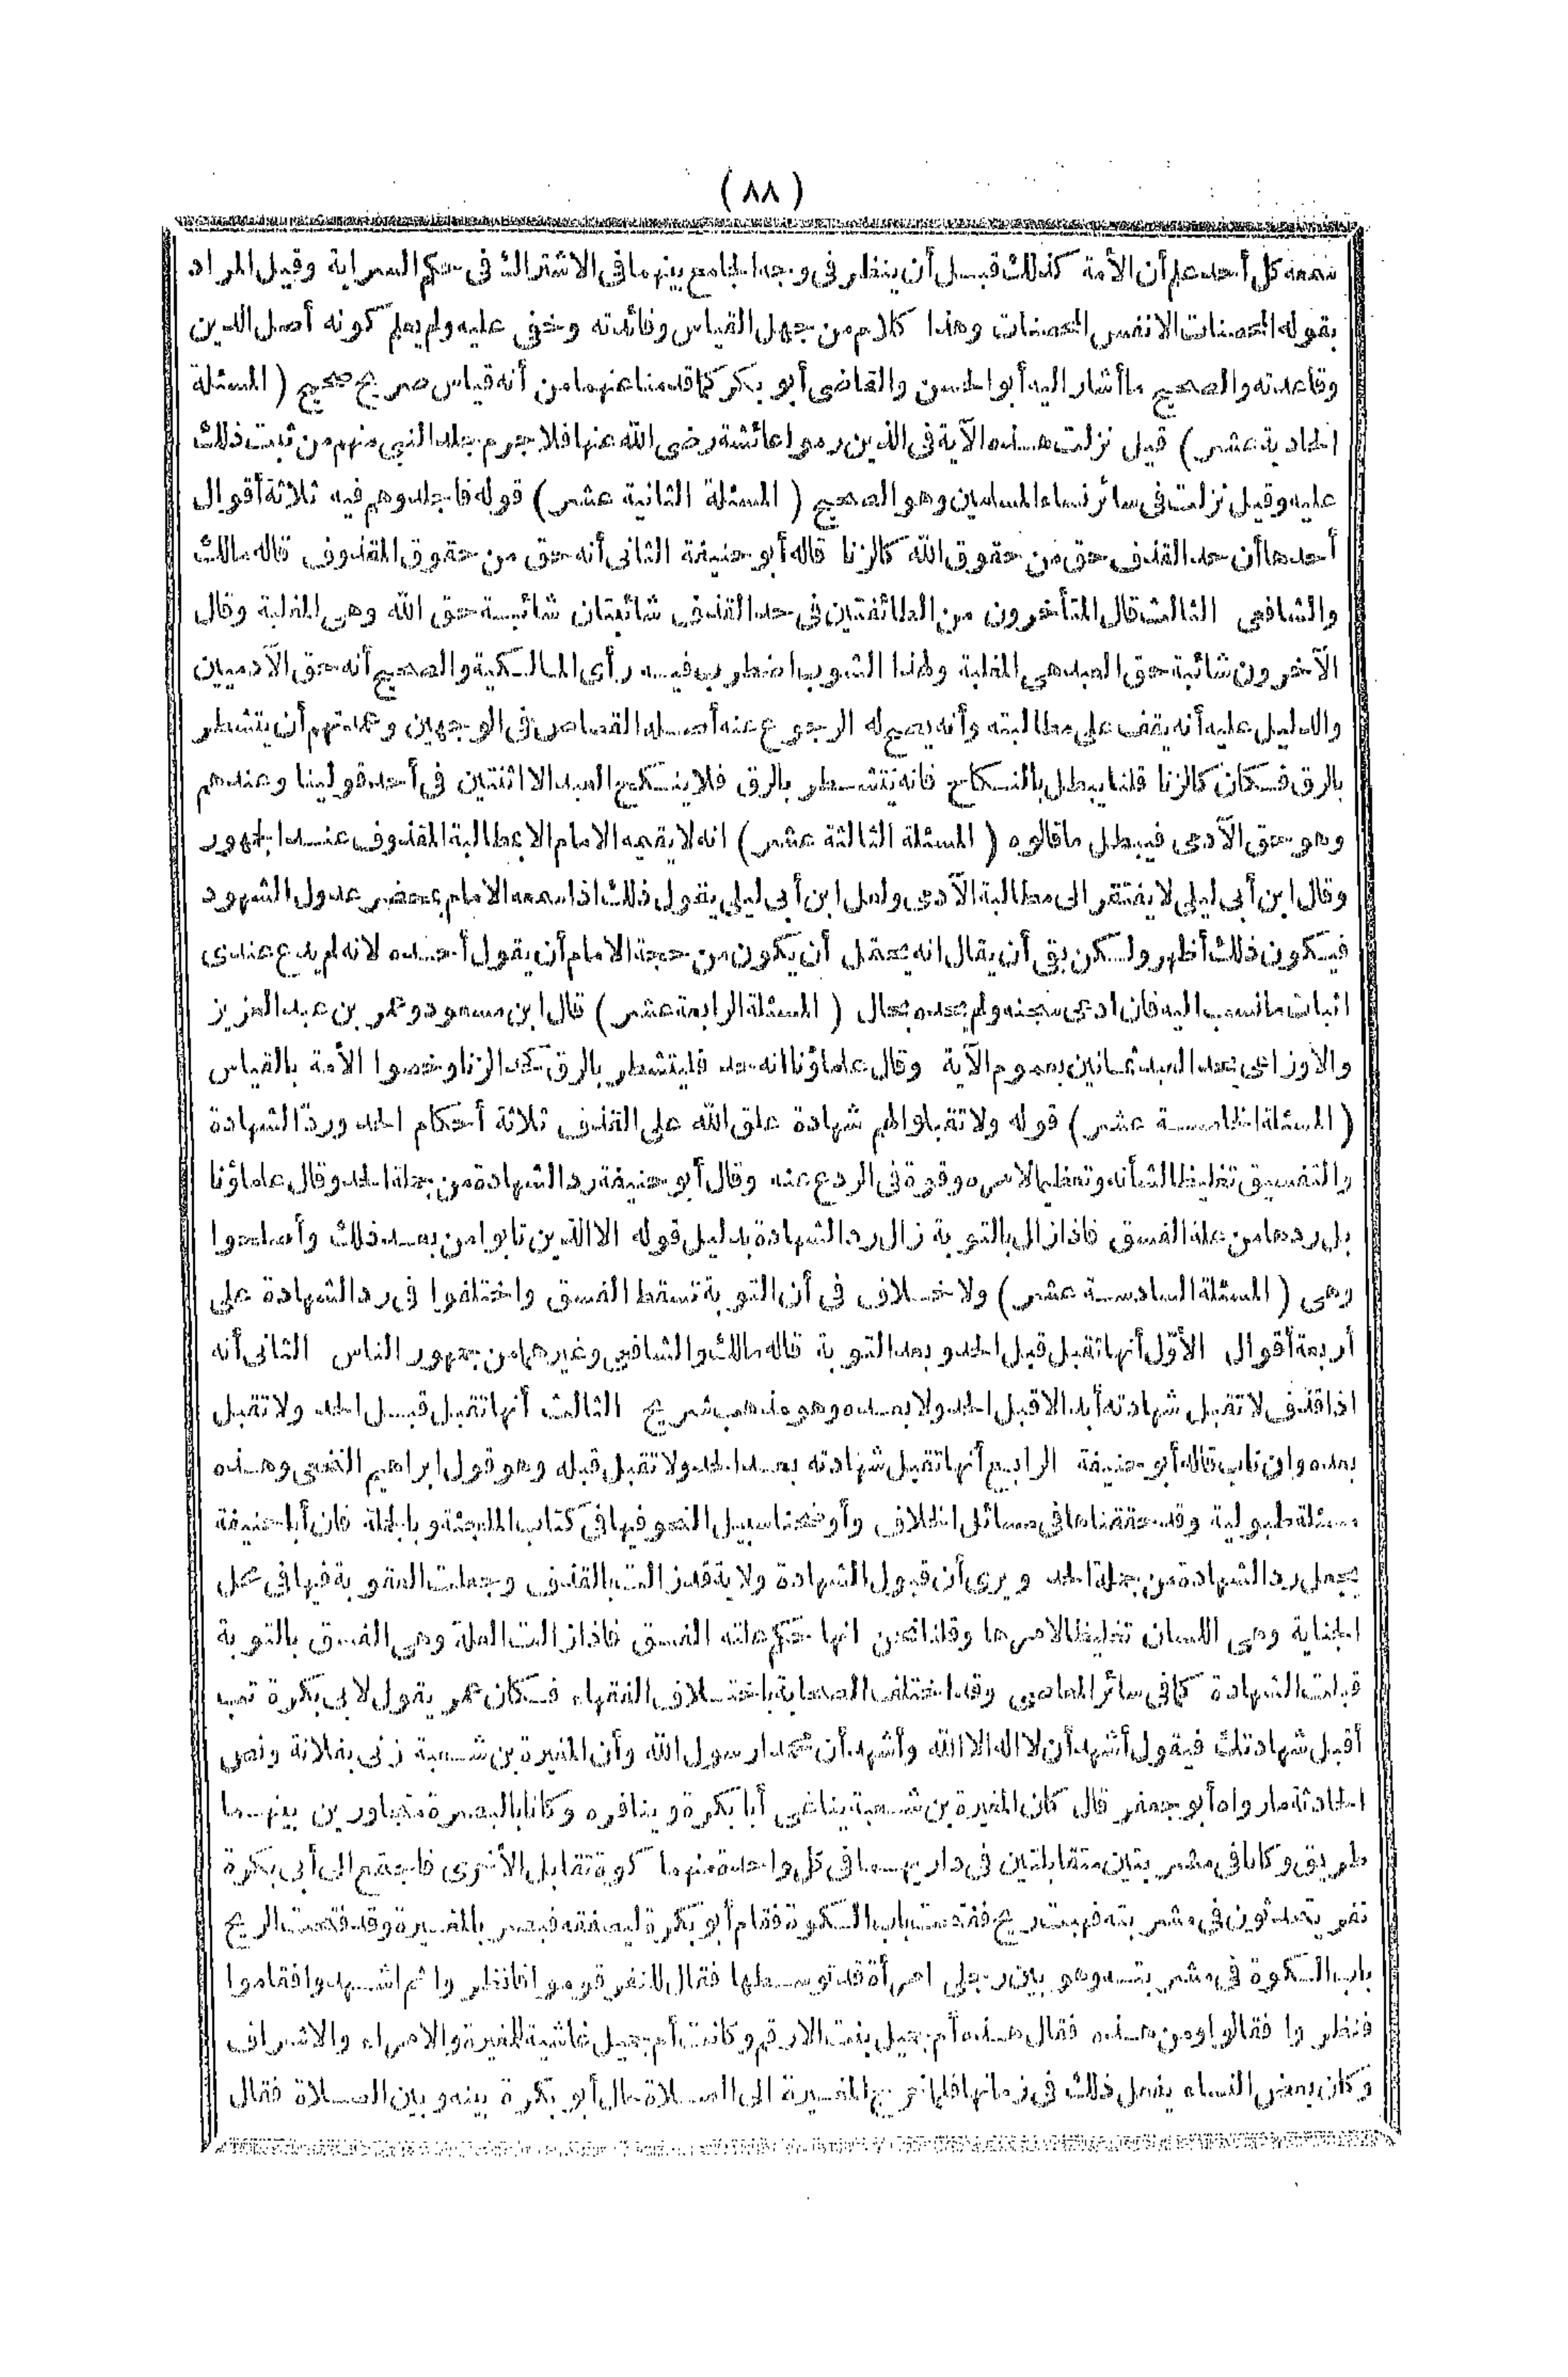 (٨٨)
سمعه كل أحد علم أن الأمة كذلك قبل أن ينظر فى وجه الجامع بينهما فى الاشتراك فى حكم السراية وقيل المراد
بقوله المحصنات الانفس المحصنات وهذا كلام من جهل القياس وفائدته وخفى عليه ولم يعلم كونه أصل الدين
وقاعدته والصحيح ما أشار اليه أبو الحسن والقاضى أبو بكر كما قدمنا عنهما من أنه قياس صريح صحيح ( المسئلة
الحادية عشر ) قيل نزلت هذه الآية فى الذين رموا عائشة رضى الله عنها فلا جرم جلد النبى منهم من ثبت ذلك
عليه وقيل نزلت فى سائر نساء المسلمين وهو الصحيح ( المسئلة الثانية عشر ) قوله فاجلدوهم فيه ثلاثة أقوال
أحدها أن حد القذف حق من حقوق الله كالزنا قاله أبو حنيفة الثانى أنه حق من حقوق المقذوف قاله مالك
والشافعى الثالث قال المتأخرون من الطائفتين فى حد القذف شائبتان شائبة حق الله وهى المغلبة وقال
الآخرون شائبة حق العبد هى المغلبة ولهذا الشوب اضطرب فيه رأى المالكية والصحيح أنه حق الآدميين
والدليل عليه أنه يقف على مطالبته وأنه يصح له الرجوع عنه أصله القصاص فى الوجهين وعمدتهم أن يتشطر
بالرق فكان كالزنا قلنا يبطل بالنكاح فانه يتشطر بالرق فلا ينكح العبد الا اثنتين فى أحد قولينا وعندهم
وهو حق الآدمى فيبطل ما قالوه ( المسئلة الثالثة عشر ) انه لا يقيمه الامام الا بمطالبة المقذوف عند الجمهور
وقال ابن أبى ليلى لا يفتقر الى مطالبة الآدمى ولعل ابن أبى ليلى يقول ذلك اذا سمعه الامام بمحضر عدول الشهود
فيكون ذلك أظهر ولكن بقى أن يقال انه يحتمل أن يكون من حجة الامام أن يقول أحده لانه لم يدع عندى
اثبات ما نسب اليه فان ادعى سجنه ولم يحده بحال ( المسئلة الرابعة عشر ) قال ابن مسعود وعمر بن عبد العزيز
والاوزاعى يحد العبد ثمانين بعموم الآية وقال علماؤنا انه حد فليتشطر بالرق كحد الزنا وخصوا الأمة بالقياس
( المسئلة الخامسة عشر ) قوله ولا تقبلوا لهم شهادة علق الله على القذف ثلاثة أحكام الحد وردّ الشهادة
والتفسيق تغليظا لشأنه وتعظيما لامره وقوة فى الردع عنه وقال أبو حنيفة رد الشهادة من جملة الحد وقال علماؤنا
بل ردها من علة الفسق فاذا زال بالتوبة زال رد الشهادة بدليل قوله الا الذين تابوا من بعد ذلك وأصلحوا
وهى ( المسئلة السادسة عشر ) ولا خلاف فى أن التوبة تسقط الفسق واختلفوا فى رد الشهادة على
أربعة أقوال الأوّل أنها تقبل قبل الحد وبعد التوبة قاله مالك والشافعى وغيرهما من جمهور الناس الثانى أنه
اذا قذف لا تقبل شهادته أبدا لا قبل الحد ولا بعده وهو مذهب شريح الثالث أنها تقبل قبل الحد ولا تقبل
بعده وان تاب قاله أبو حنيفة الرابع أنها تقبل شهادته بعد الحد ولا تقبل قبله وهو قول ابراهيم النخعى وهذه
مسئلة طبولية وقد حققناها فى مسائل الخلاف وأوضحنا سبيل النحو فيها فى كتاب الملجئة وبالجملة فان أبا حنيفة
يجعل رد الشهادة من جملة الحد ويرى أن قبول الشهادة ولاية قد زالت بالقذف وجعلت العقوبة فيها فى محل
الجناية وهى اللسان تغليظا لامرها وقلنا نحن انها حكم علته الفسق فاذا زالت العلة وهى الفسق بالتوبة
قبلت الشهادة كما فى سائر المعاصى وقد اختلف الصحابة باختلاف الفقهاء فكان عمر يقول لابى بكرة تب
أقبل شهادتك فيقول أشهد أن لا اله الا الله وأشهد أن محمدا رسول الله وأن المغيرة بن شعبة زنى بفلانة ونص
الحادثة ما رواه أبو جعفر قال كان المغيرة بن شعبة يناغى أبا بكرة وينافره وكانا بالبصرة متجاورين بينهما
طريق وكانا فى مشربتين متقابلتين فى داريهما فى كل واحدة منهما كوة تقابل الأخرى فاجتمع الى أبى بكرة
نفر يتحدثون فى مشربته فهبت ريح ففتحت باب الكوة فقام أبو بكرة ليصفقه فبصر بالمغيرة وقد فتحت الريح
باب الكوة فى مشربته وهو بين رجلى امرأة قد توسطها فقال للنفر قوموا فانظروا ثم اشهدوا فقاموا
فنظروا فقالوا ومن هذه فقال هذه أم جميل بنت الارقم وكانت أم جميل غاشية للمغيرة والامراء والاشراف
وكان بعض النساء يفعل ذلك فى زمانها فلما خرج المغيرة الى الصلاة حال أبو بكرة بينه وبين الصلاة فقال